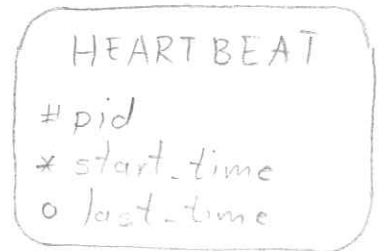 HEARTBEAT
# pid
* start_time
o last_time